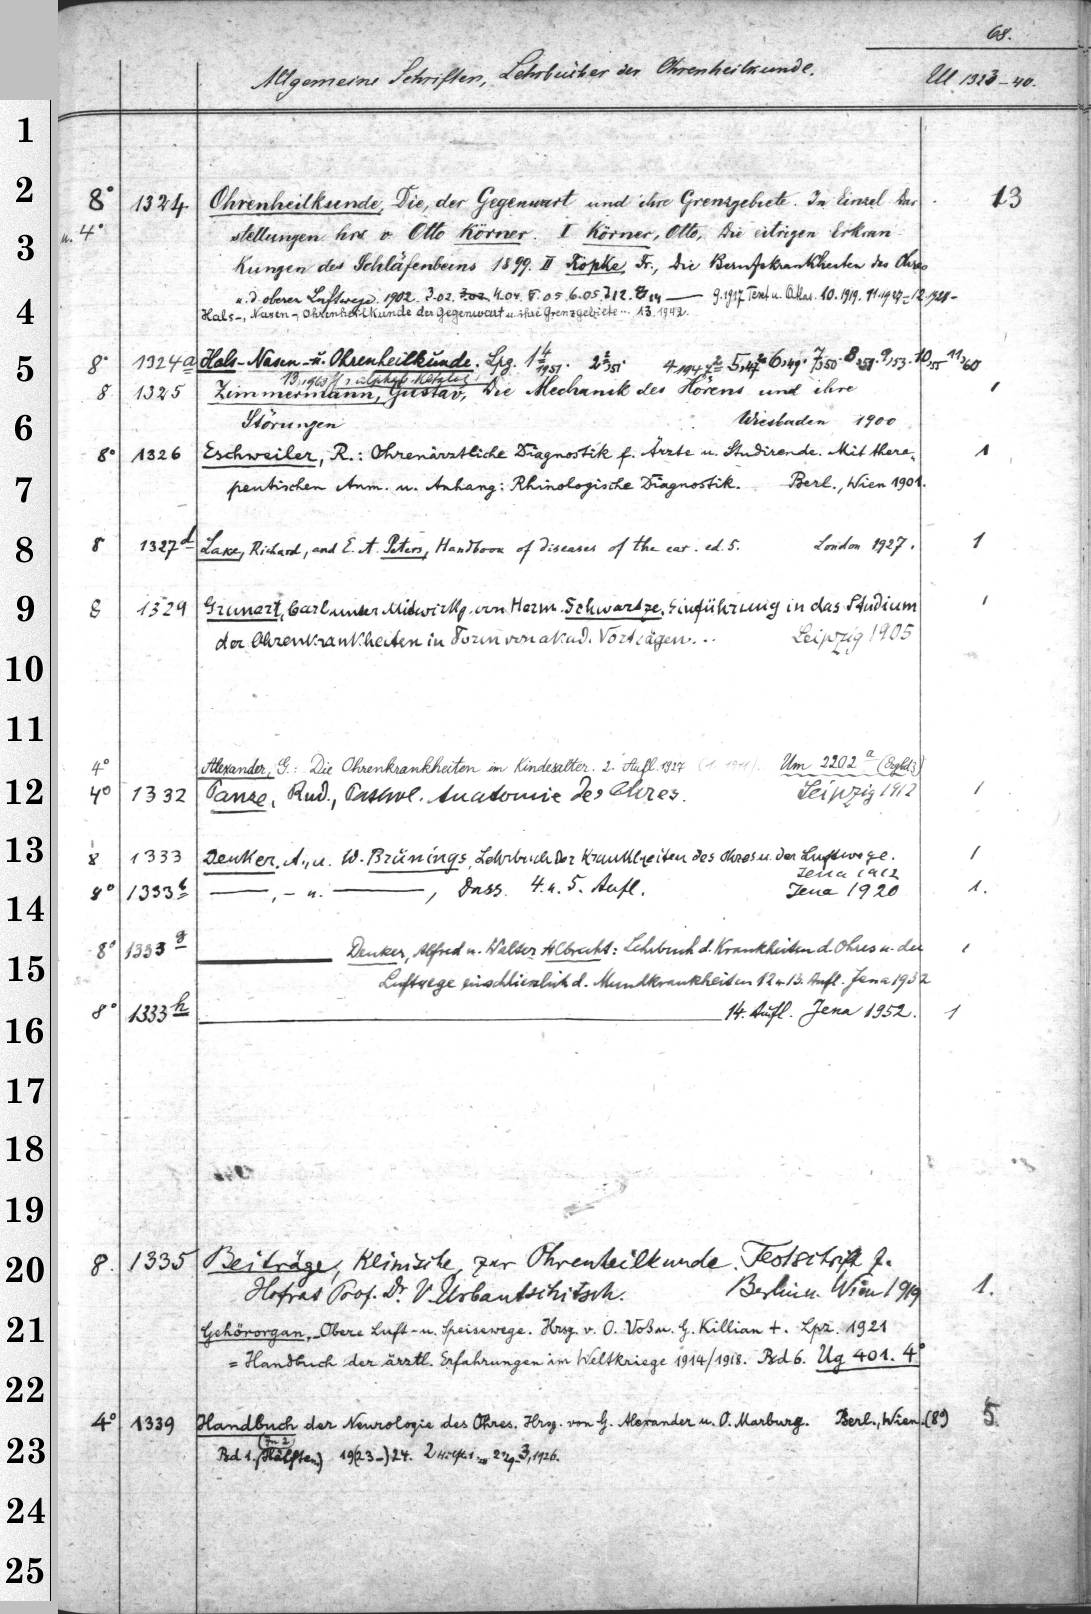 68.
Allgemeine Schriften, Lehrbücher der Ohrenheilkunde.
Ul 1323-40.
1
2
8° 1324 Ohrenheilkunde, Die, der Gegenwart und ihre Grenzgebiete. In Einzel dar- 13
u. 4° stellungen hrs v Otto Körner. I Körner, Otto, Die eitrigen Erkran-
3
kungen des Schläfenbeins 1899. II Röpke, Fr., Die Berufskrankheiten des Ohres
u. d. oberen Luftwege 1902. 4.04. 5.05. 6.05. 7.12. 8.14 — 9.1917 Text u. Atlas. 10.1919. 11.1927 12.1928-
4
Hals-, Nasen-, Ohrenheilkunde der Gegenwart u. ihre Grenzgebiete... 13. 1942.
5
8° 1324a Hals-Nasen-u. Ohrenheilkunde. Lpg.
8 1325 Zimmermann, Gustav, Die Mechanik des Hörens und ihre 1
6
Störungen Wiesbaden 1900
8° 1326 Eschweiler, R.: Ohrenärztliche Diagnostik f. Ärzte u. Studirende. Mit thera- 1
7
peutischen Anm. u. Anhang: Rhinologische Diagnostik. Berl., Wien 1901.
8
8 1327d Lake, Richard, and E. A. Peters, Handbook of diseases of the ear. ed. 5. London 1927. 1
9
8 1329 Grunert, Carl unter Mitwirkg. von Herm. Schwartze, Einführung in das Studium 1
der Ohrenkrankheiten in Form von akad. Vorträgen... Leipzig 1905
10
11
4° Alexander, G.: Die Ohrenkrankheiten im Kindesalter. 2. Aufl. 1927 Um 2202 a
12
4° 1332 Panse, Rud., Pathol. Anatomie des Ohres. Leipzig 1912 1
13
8 1333 Denker, A., u. W. Brünings, Lehrbuch der Krankheiten des Ohres u. der Luftwege. 1
Jena 1912
14
8° 1333b —, - u. —, Dass. 4. u. 5. Aufl. Jena 1920 1.
8° 1333g — Denker, Alfred u. Walter Albrecht: Lehrbuch d. Krankheiten d. Ohres u. der 1
15
Luftwege einschliesslich d. Mundkrankheiten 12 u. 13. Aufl. Jena 1932
16
8° 1333h — 14. Aufl. Jena 1952. 1
17
18
19
20
8. 1335 Beiträge, Klinische, zur Ohrenheilkunde. Festschrift f.
Hofrat Prof. Dr. V. Urbantschitsch. Berlin u. Wien 1919 1.
21
Gehörorgan, Obere Luft- u. Speisewege. Hrsg. v. O. Voß u. G. Killian +. Lpz. 1921
= Handbuch der ärztl. Erfahrungen im Weltkriege 1914/1918. Bd 6. Ug 401. 4°
22
4° 1339 Handbuch der Neurologie des Ohres. Hrsg. von G. Alexander u. O. Marburg. Berl., Wien. (8°) 5
23
(In 2
Bd 1. Hälften) 19(23-)24. 3, 1926.
24
25